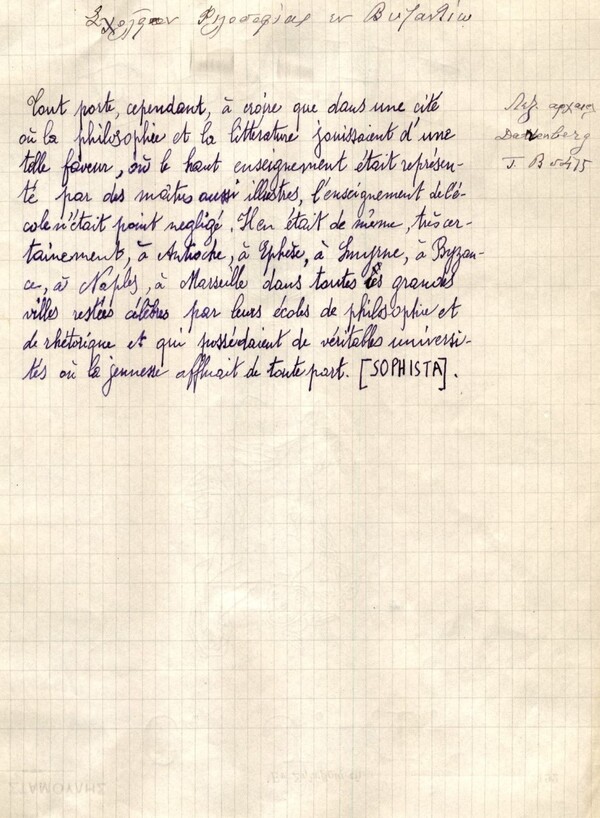 Σχολή Φιλοσοφίας εν Βυζαντίω
Λεξ. αρχαιο
Daremberg
Τ. Β σ 475
Tout porte, cependant, à croire que dans une cité
où la philosophie et la littérature jouissaient d'une
telle faveur, où le haut enseignement était représen-
té par des maîtres aussi illustres, l'enseignement de l'é-
cole n'était point negligé. Il en était de même, très cer-
tainement, à Antioche, à Ephèse, à Smyrne, à Byzan-
ce, à Naples, à Marseille dans toutes les grandes
villes restées célèbres par leurs écoles de philosophie et
de rhétorique et qui possédaient de véritables universi-
tés où la jeunesse affluait de toute part. [SOPHISTA].
ΣΤΑΜΟΥΛΗΣ